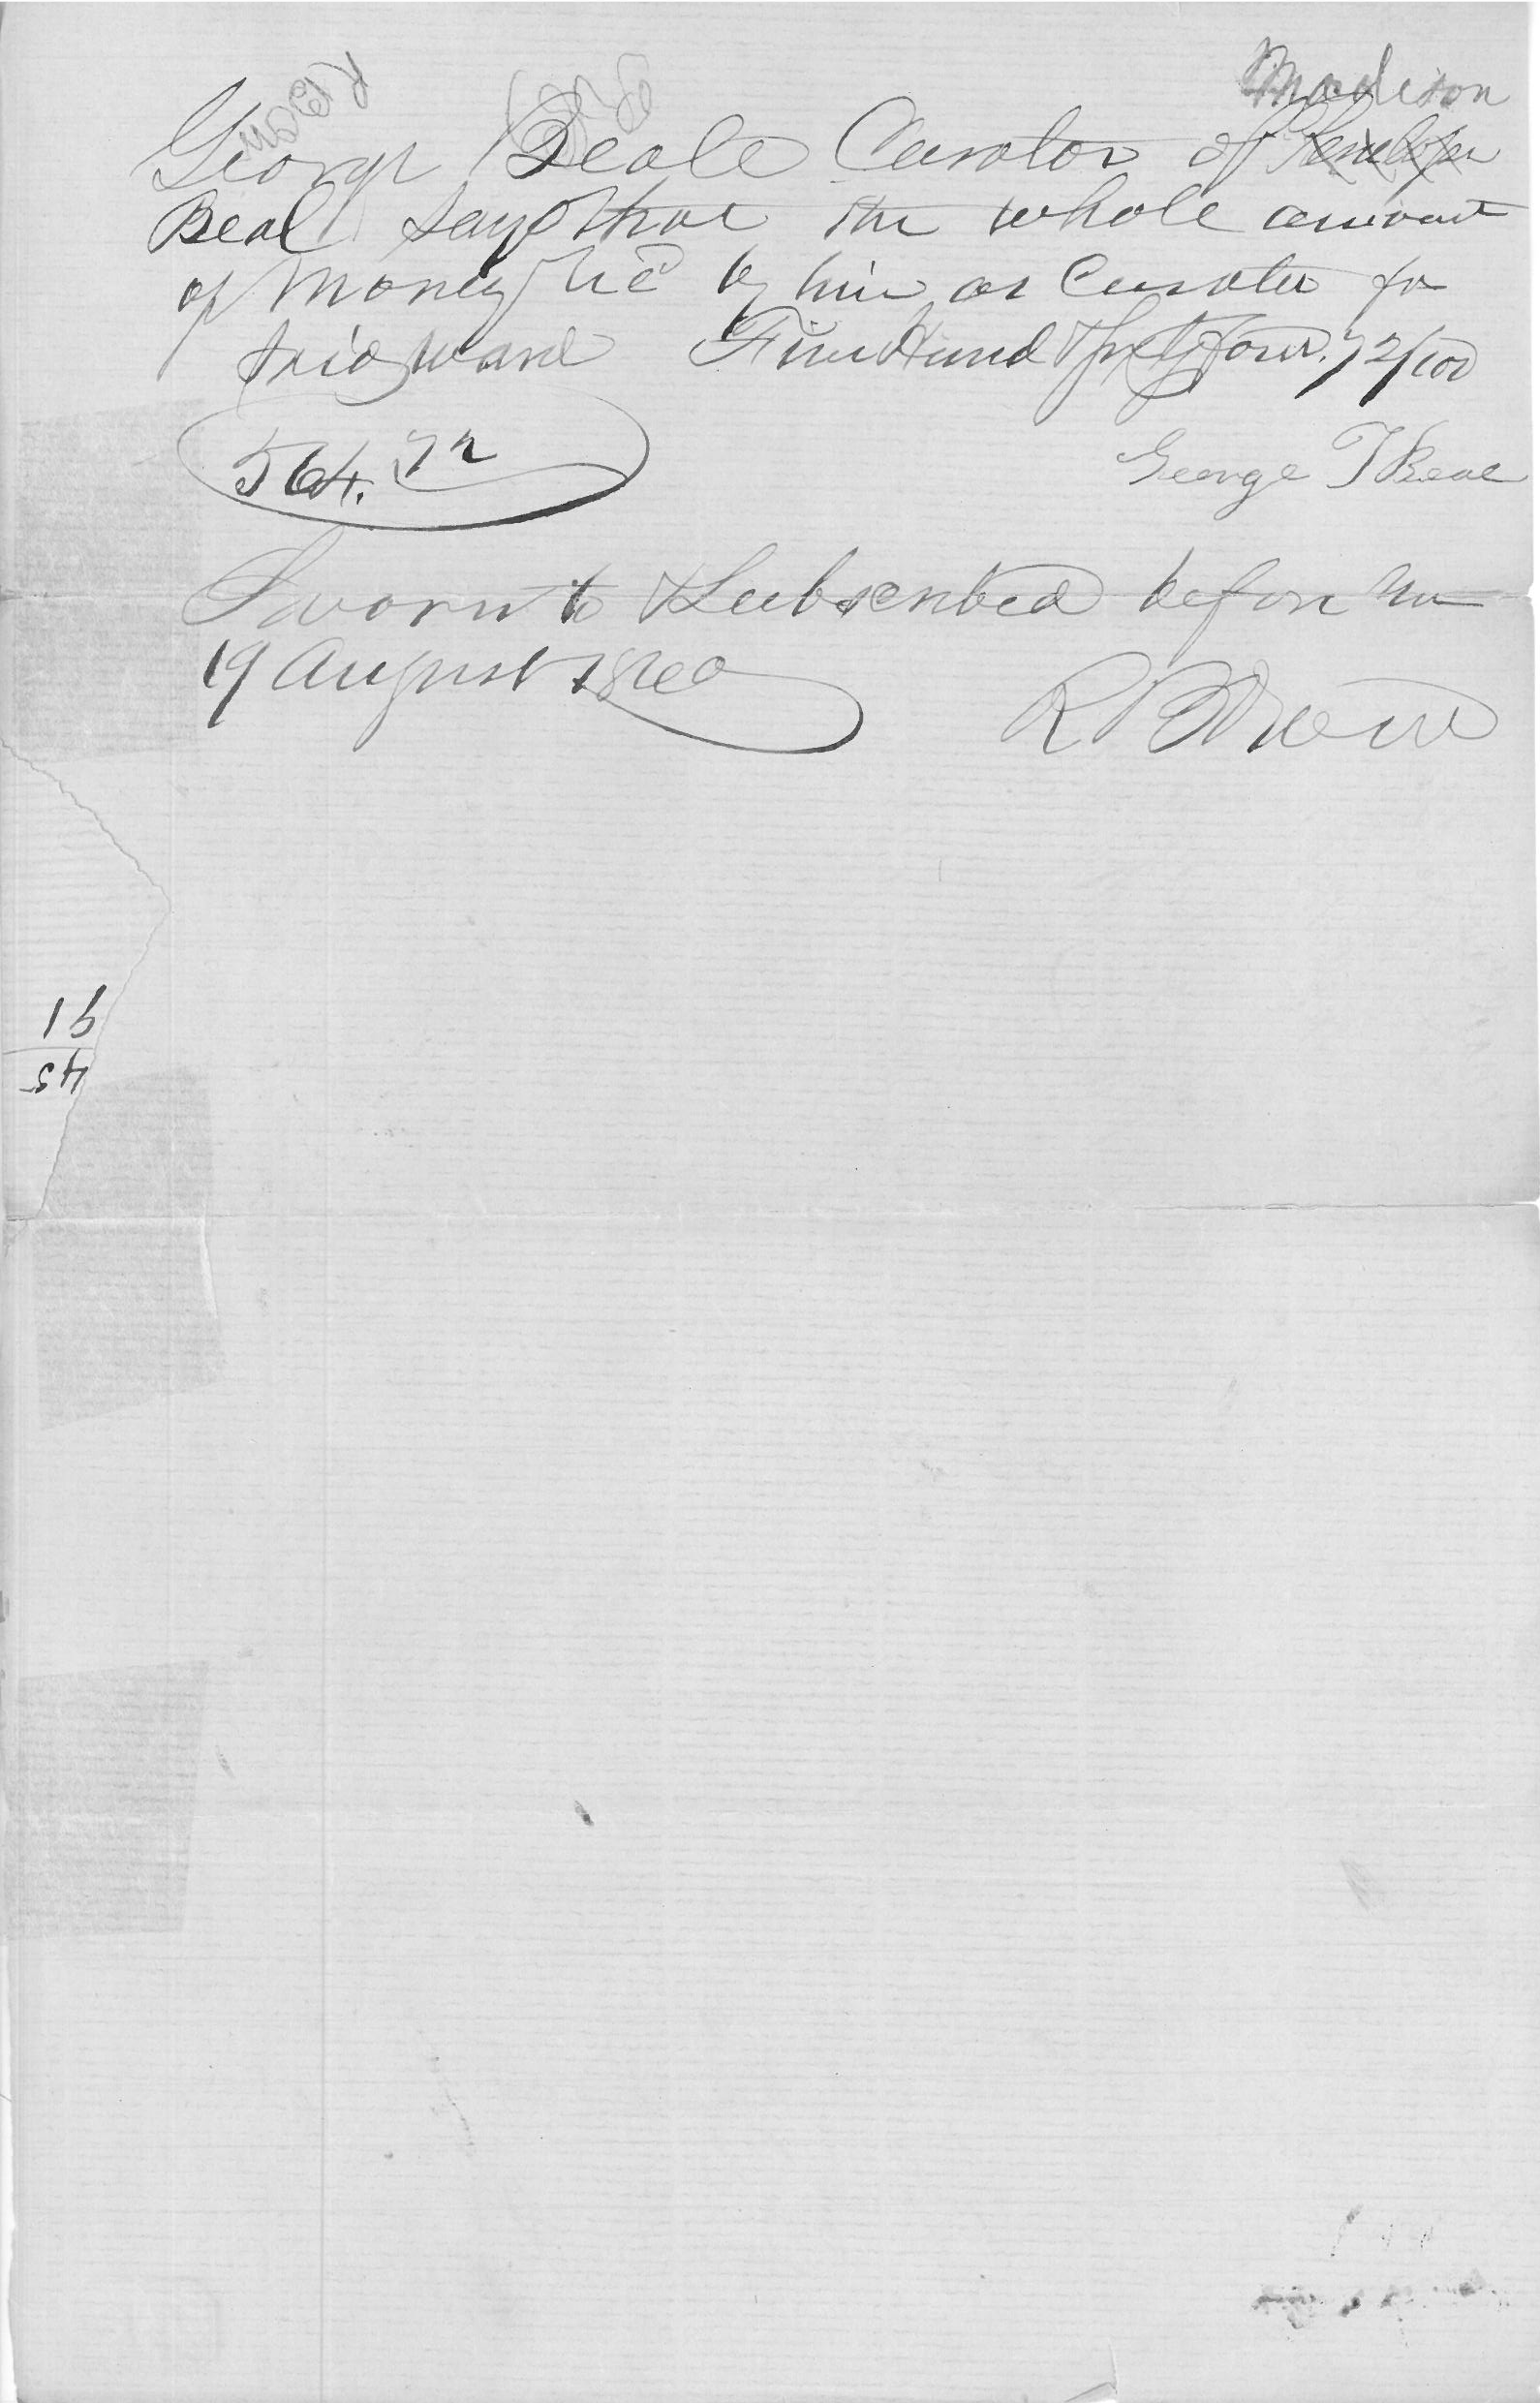 Madison
George Beale Curator of Penelope
Beal says that the whole amount
of money rec by him as Curator for
said ward Five Hund & sixty four. 72/100
564.72
George T Beal
Sworn to & Subscribed before me
19 August 1860
R B
91
45